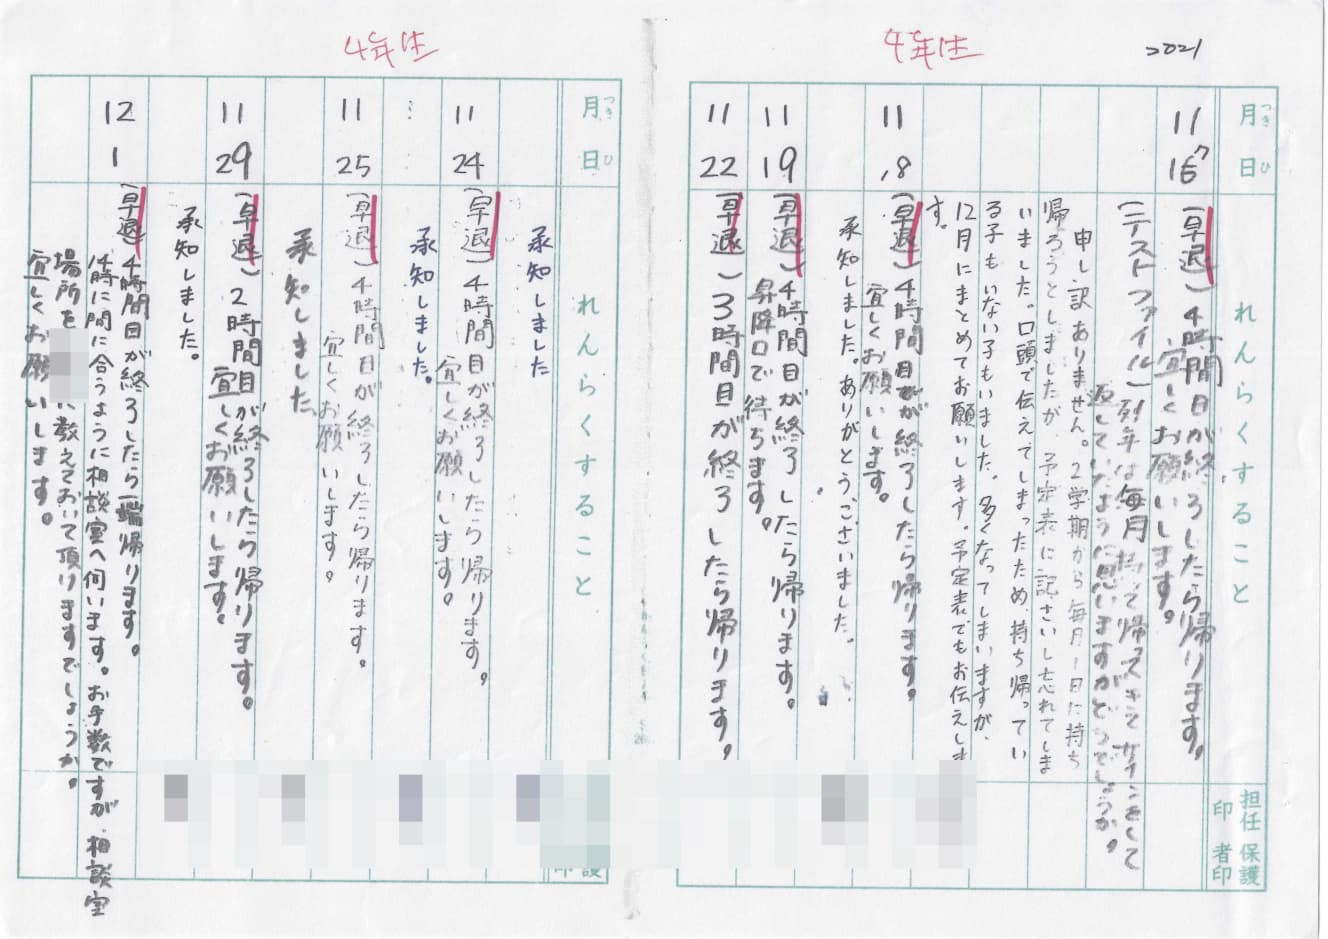 2021
4年生
月 つき
日 ひ
れんらくすること
担任印
保護者印
11
16
(早退)4時間目が終了したら帰ります。
宜しくお願いします。
(テストファイル)例年は毎月持って帰ってきてサインをして
返していたように思いますがどうでしょうか。
申し訳ありません。2学期から毎月1日に持ち
帰ろうとしましたが、予定表に記さいし忘れてしま
いました。口頭で伝えてしまったため、持ち帰ってい
る子もいない子もいました。多くなってしまいますが、
12月にまとめてお願いします。予定表でもお伝えしま
す。
11
18
(早退)4時間目が終了したら帰ります。
宜しくお願いします。
承知しました。ありがとうございました。
11
19
(早退)4時間目が終了したら帰ります。
昇降口で待ちます。
11
22
(早退)3時間目が終了したら帰ります。
4年生
月 つき
日 ひ
れんらくすること
承知しました
11
24
(早退)4時間目が終了したら帰ります。
宜しくお願いします。
承知しました。
11
25
(早退)4時間目が終了したら帰ります。
宜しくお願いします。
承知しました。
11
29
(早退)2時間目が終了したら帰ります。
宜しくお願いします。
承知しました。
12
1
(早退)4時間目が終了したら一端帰ります。
14時に間に合うように相談室へ伺います。お手数ですが、相談室
場所を に教えておいて頂けますでしょうか。
宜しくお願いします。